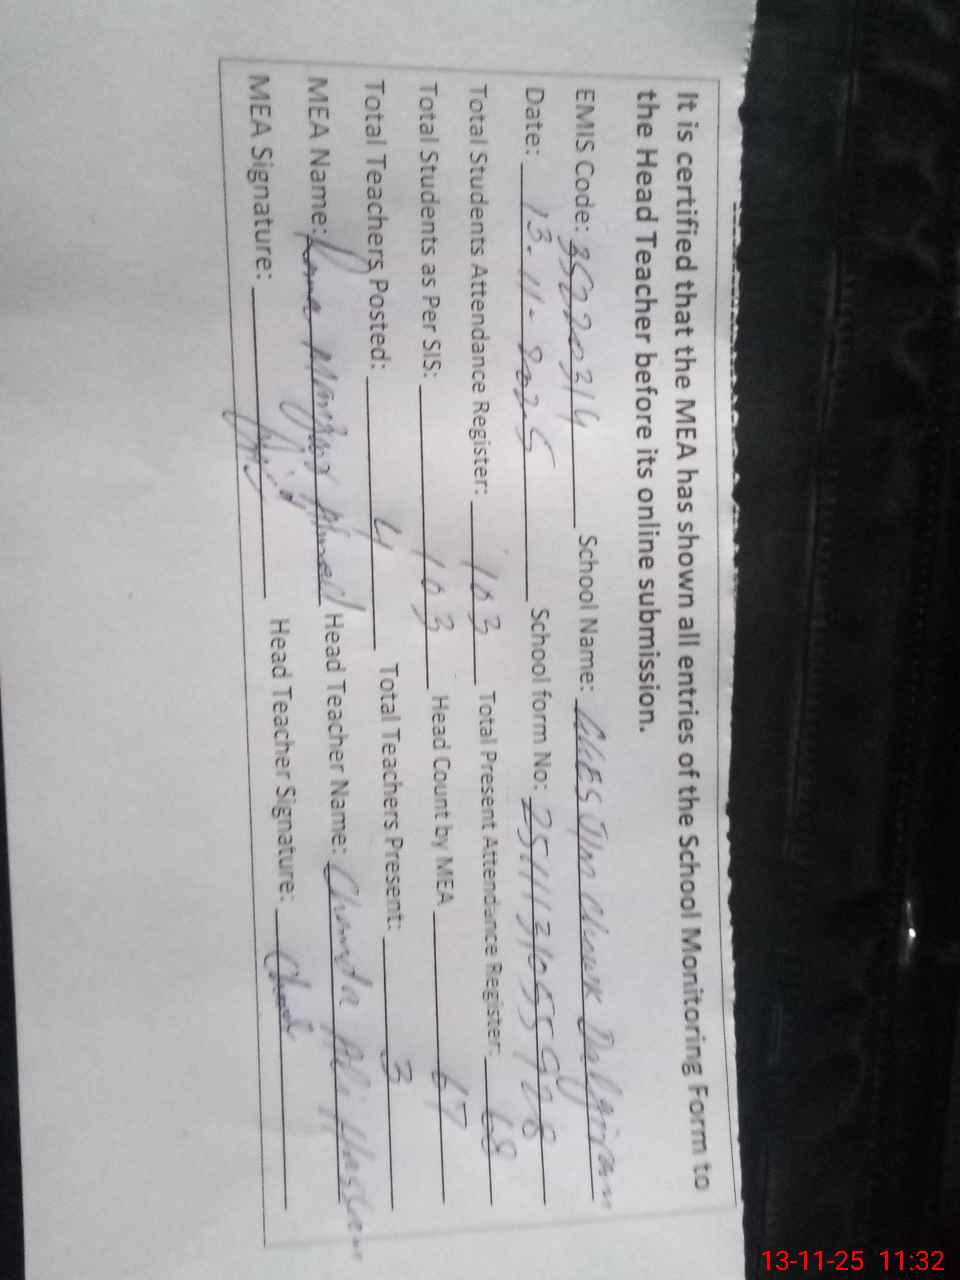 It is certified that the MEA has shown all entries of the School Monitoring Form to
the Head Teacher before its online submission.
EMIS Code: 35220314 School Name:
Date: 13-11-2025 School form No: 2511131055928
Total Students Attendance Register: 103 Total Present Attendance Register: 68
Total Students as Per SIS: 103 Head Count by MEA 67
Total Teachers Posted: 4 Total Teachers Present: 3
MEA Name: Ahmad Head Teacher Name: Chanda Ali Hassan
MEA Signature: Head Teacher Signature:
13-11-25 11:32